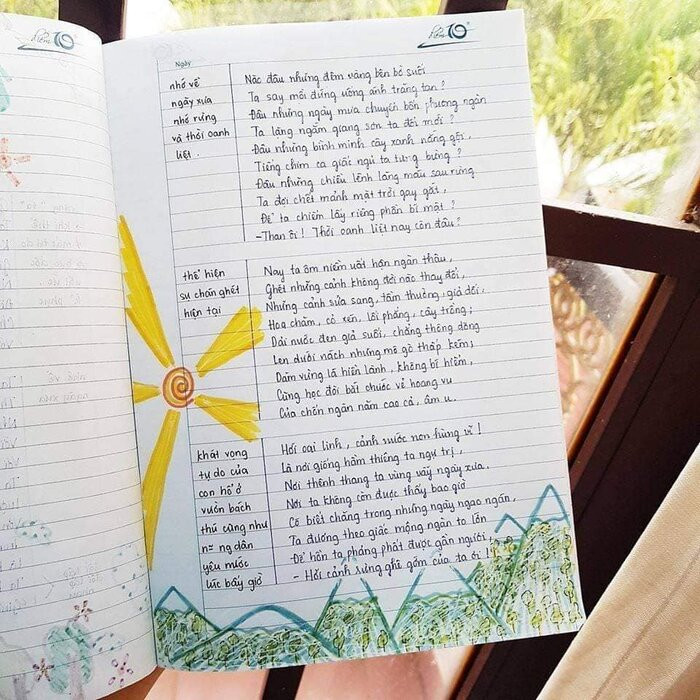 Ngày
nhớ về
ngày xưa
nhớ rừng
và thời oanh
liệt.
Nào đâu những đêm vàng bên bờ suối
Ta say mồi đứng uống ánh trăng tan?
Đâu những ngày mưa chuyển bốn phương ngàn
Ta lặng ngắm giang sơn ta đổi mới?
Đâu những bình minh cây xanh nắng gội,
Tiếng chim ca giấc ngủ ta tưng bừng?
Đâu những chiều lênh láng máu sau rừng
Ta đợi chết mảnh mặt trời gay gắt,
Để ta chiếm lấy riêng phần bí mật?
- Than ôi! Thời oanh liệt nay còn đâu?
thể hiện
sự chán ghét
hiện tại
Nay ta ôm niềm uất hận ngàn thâu,
Ghét những cảnh không đời nào thay đổi,
Những cảnh sửa sang, tầm thường, giả dối,
Hoa chăm, cỏ xén, lối phẳng, cây trồng;
Dải nước đen giả suối, chẳng thông dòng
Len dưới nách những mô gò thấp kém;
Dăm vừng lá hiền lành, không bí hiểm,
Cũng học đòi bắt chước vẻ hoang vu
Của chốn ngàn năm cao cả, âm u.
khát vọng
tự do của
con hổ ở
vườn bách
thú cũng như
ng dân
yêu nước
lúc bấy giờ
Hỡi oai linh, cảnh nước non hùng vĩ!
Là nơi giống hầm thiêng ta ngự trị,
Nơi thênh thang ta vùng vẫy ngày xưa.
Nơi ta không còn được thấy bao giờ
Có biết chăng trong những ngày ngao ngán,
Ta đương theo giấc mộng ngàn to lớn
Để hồn ta phảng phất được gần ngươi
- Hỡi cảnh rừng ghê gớm của ta ơi!